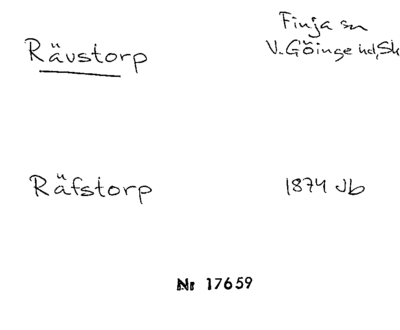 Rävstorp
Finja sn
V. Göinge hd, Sk
Räfstorp
1874 Jb
Nr 17659